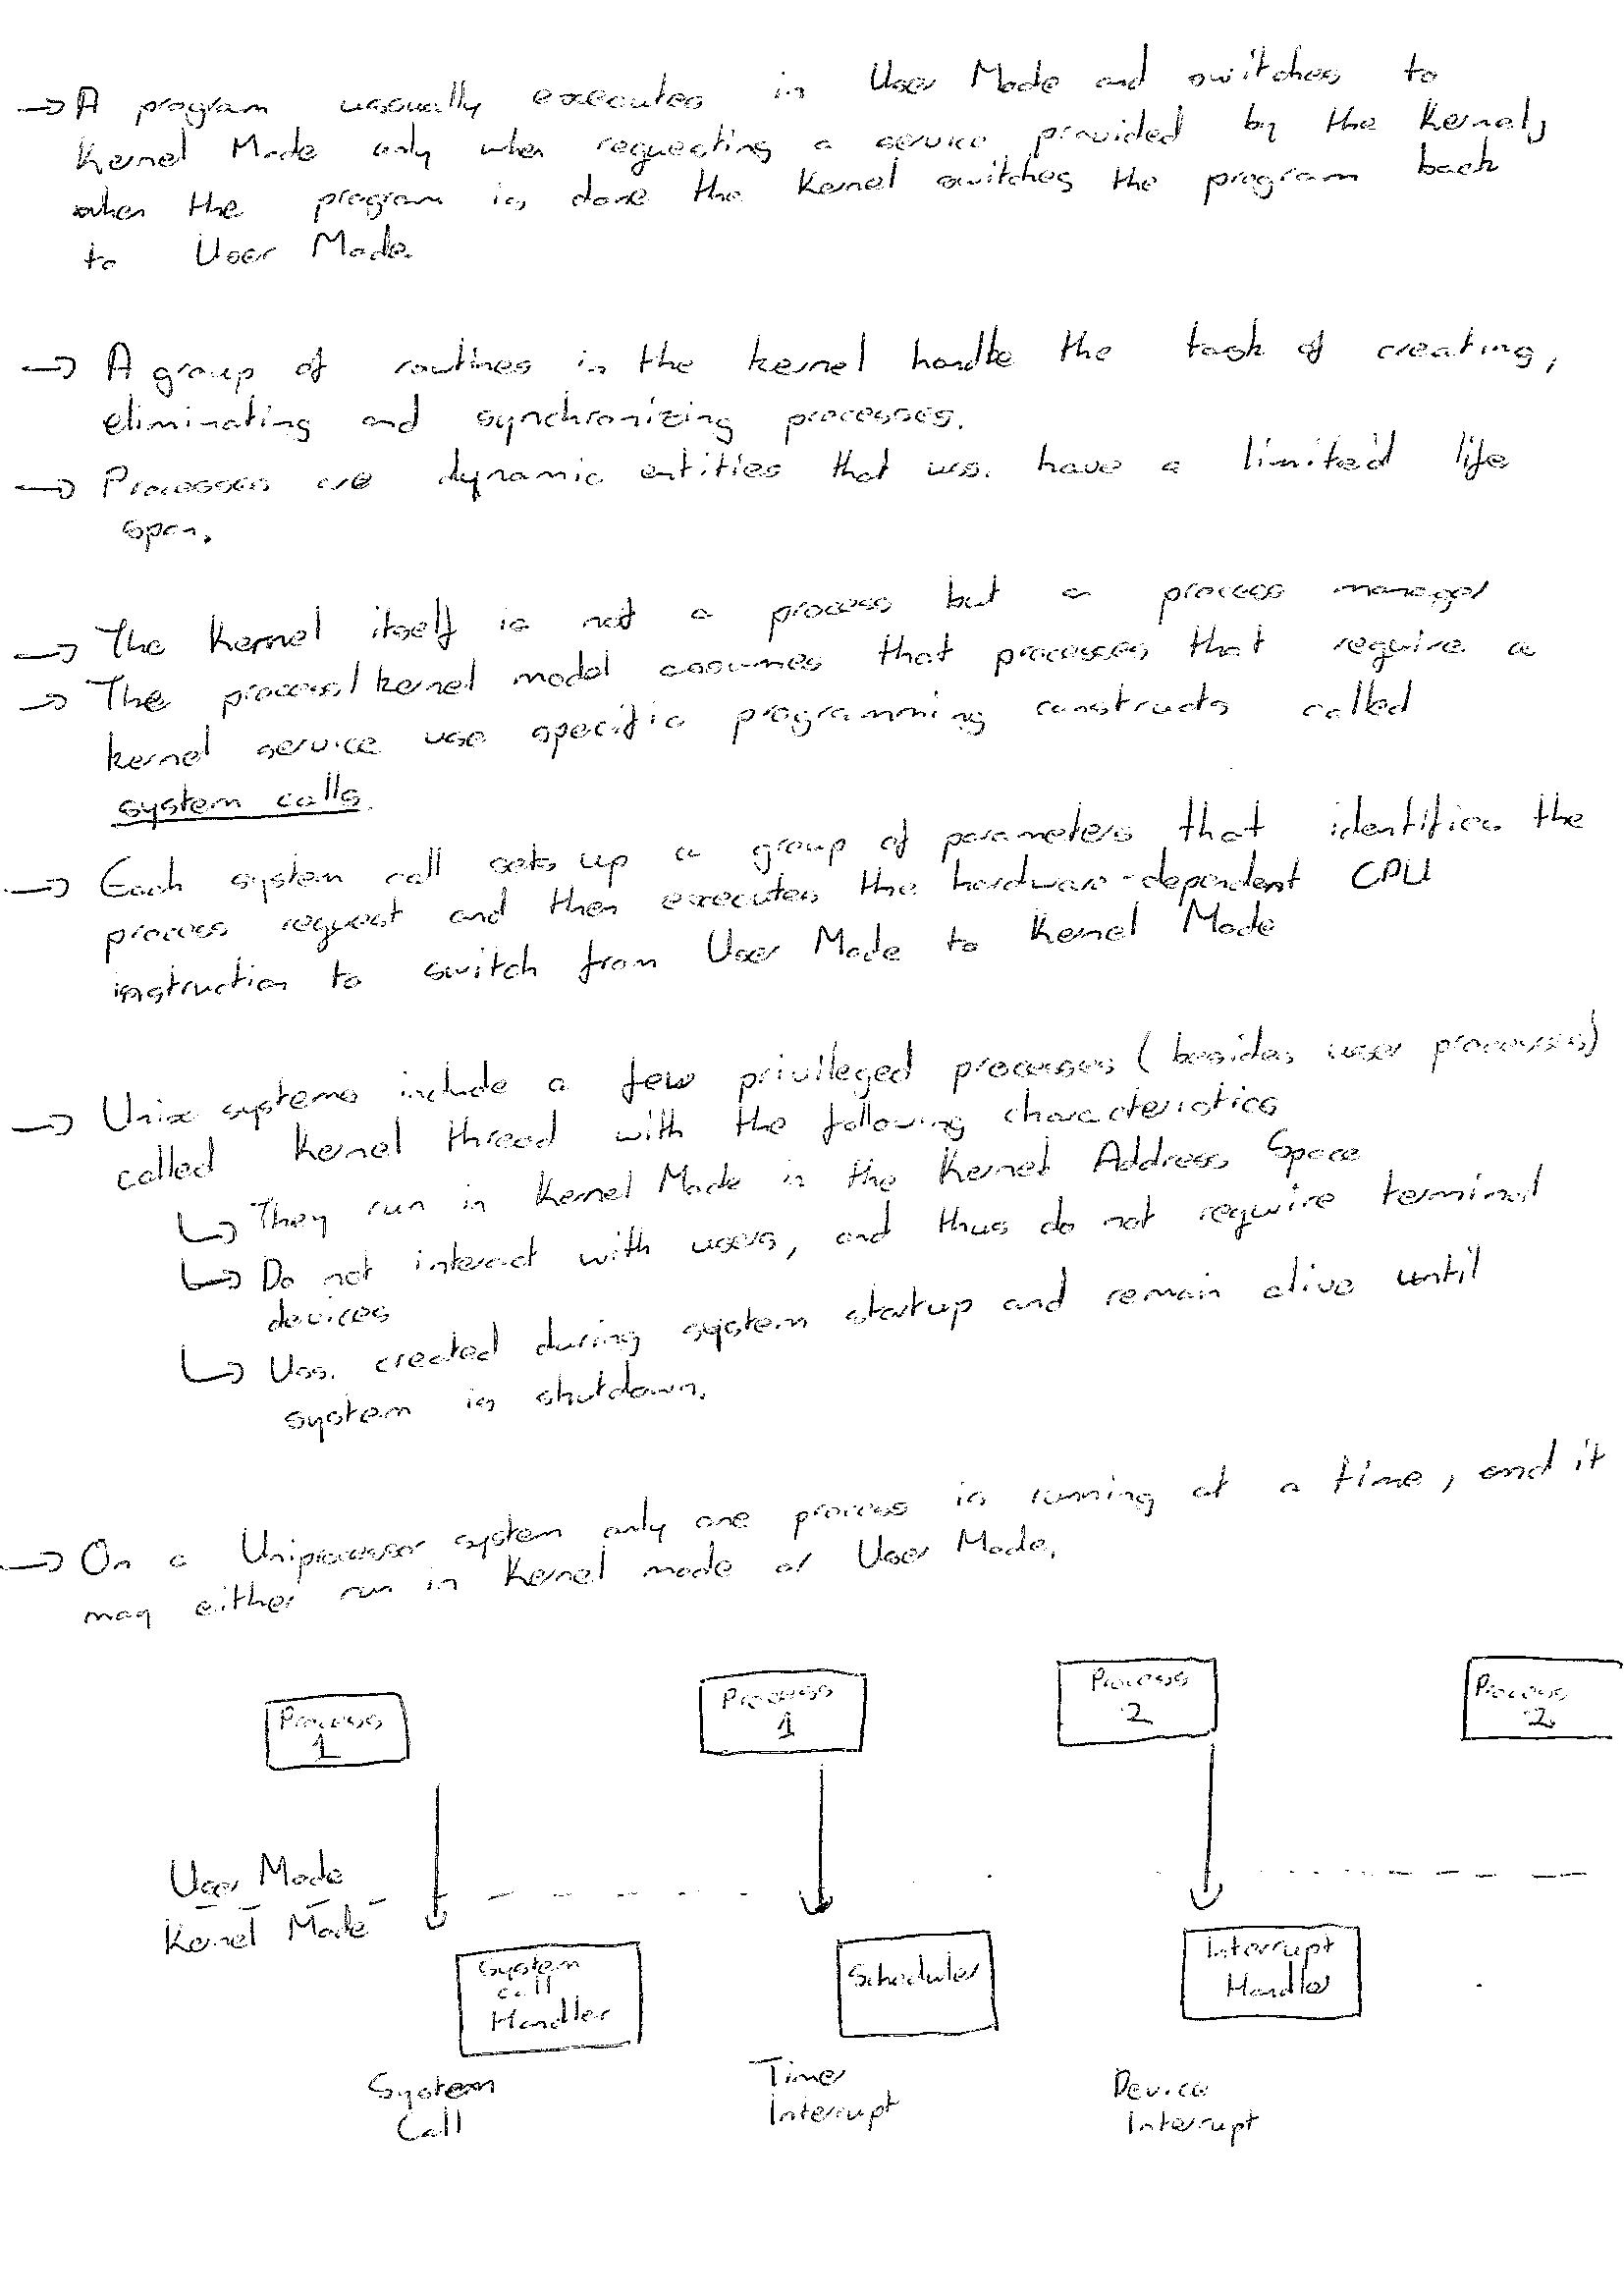 → A program usually executes in User Mode and switches to
Kernel Mode only when requesting a service provided by the Kernel,
when the program is done the Kernel switches the program back
to User Mode.
→ A group of routines in the kernel handle the task of creating,
eliminating and synchronizing processes.
→ Processes are dynamic entities that us. have a limited life
span.
→ The Kernel itself is not a process but a process manager
→ The process/kernel model assumes that processes that require a
kernel service use specific programming constructs called
system calls.
→ Each system call sets up a group of parameters that identifies the
process request and then executes the hardware-dependent CPU
instruction to switch from User Mode to Kernel Mode
→ Unix systems include a few privileged processes (besides user processes)
called Kernel thread with the following characteristics
↳ They run in Kernel Mode in the Kernel Address Space
↳ Do not interact with users, and thus do not require terminal
devices
↳ Uss. created during system startup and remain alive until
system is shutdown.
→ On a Uniprocessor system only one process is running at a time, and it
may either run in Kernel mode or User Mode.
Process 1
Process 1
Process 2
Process 2
User Mode
Kernel Mode
System call Handler
Scheduler
Interrupt Handler
System Call
Timer Interrupt
Device Interrupt